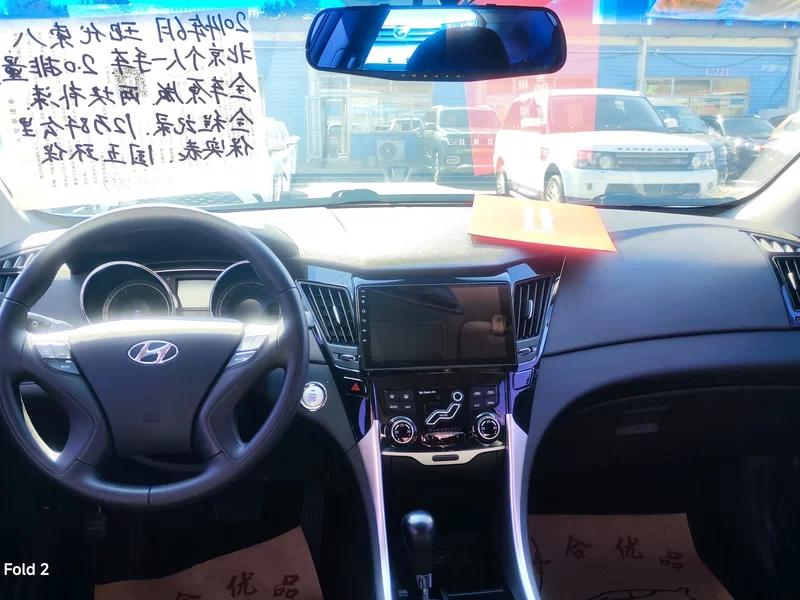 2014年6月 现代索八
北京个人一手车 2.0排量
全车原版 两块补漆.
全程记录. 12万8千公里
保实表 国五环保
RANGE ROVER
合优品
合优品
Fold 2